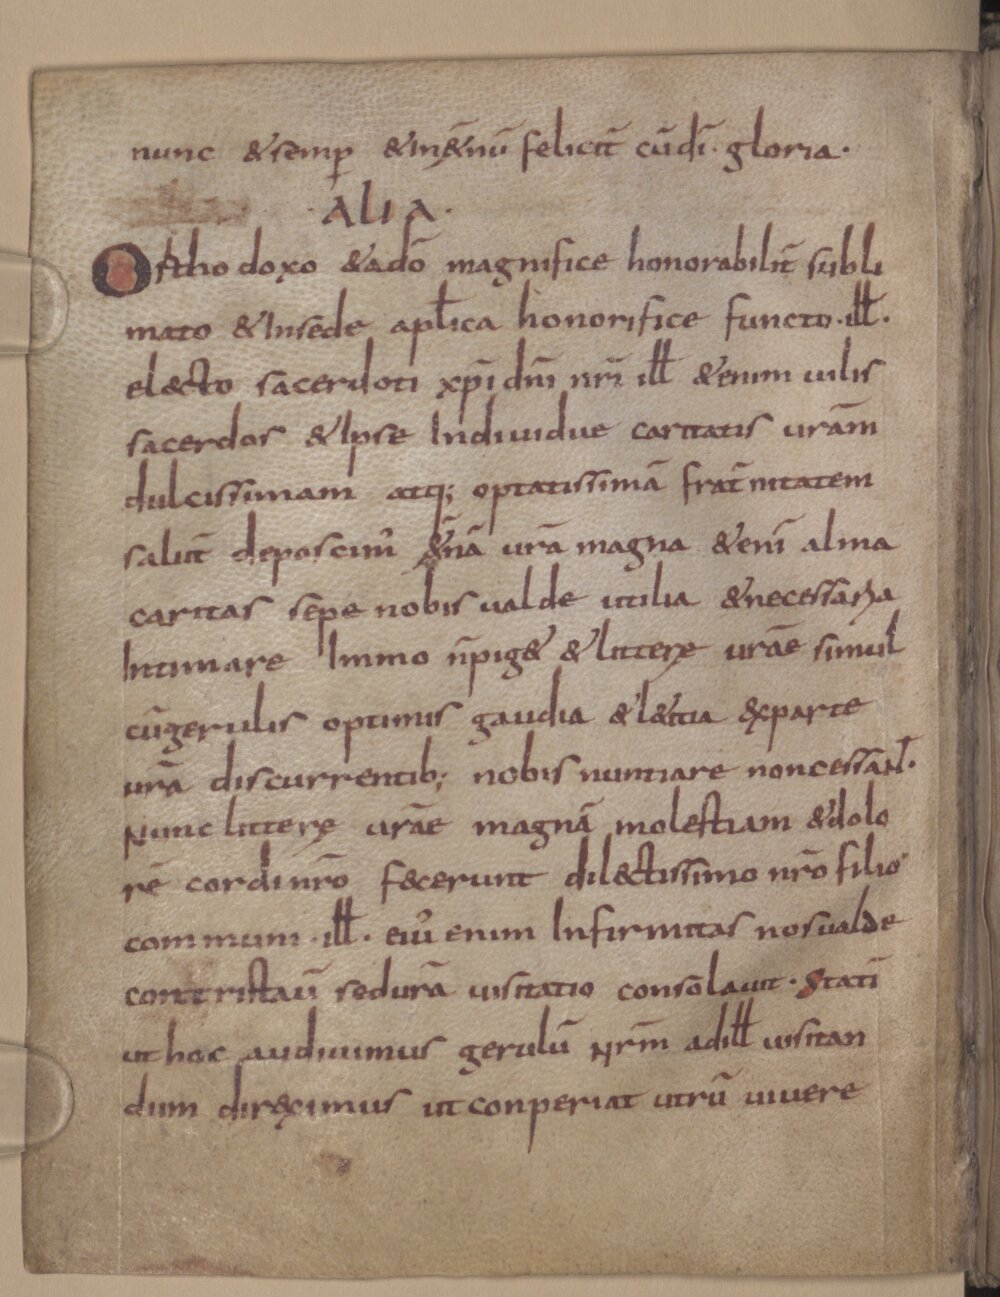 nunc &semp̲ &in&nū felicit̄ cū dī· gloria·
·ALIA·
Orthodoxo &a dō magnifice honorabilit̄ subli
mato &insede apl̄ica honorifice functo·ill̄·
el&cto sacerdoti xp̄i dn̄i nr̄i ill̄ &enim uilis
sacerdos &ipse indiuidue caritatis urām
dulcissimam atq; optatissimā frat̄nitatem
salut̄ deposcim᾽ &nā urā magna &enī alma
caritas sepe nobis ualde utilia &necessaria
intimare immo n̄pig& &litterę urāe simul
cūgerulis optimis gaudia &l&tia exparte
urā discurrentib; nobis nuntiare noncessant̄·
Nunc litterę urāe magnā molestiam &dolo
rē cordi nr̄o fecerunt dil&ctissimo nr̄o filio
communi·ill̄· ei᾽ enim infirmitas nosualde
contristaū sedurā uisitatio consolauit· Statī
ut hoc audiuimus gerulū nr̄m adill̄ uisitan
dum direximus ut conperiat utrū uiuere